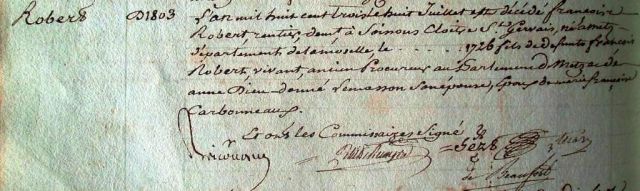 Robert D 1803
L'an mil huit cent trois le huit Juillet est décédé françois
Robert rentier, demt à Soissons Cloître St Gervais, né à metz
département de la moselle, le 1726 fils de defunts françois
Robert, vivant, ancien Procureur au Parlement de Metz et de
anne Dieu-donné Lemasson Son épouse, Epoux de marie françoise
Carbonneaux.
Et ont les Commissaires Signé
de Beaufort